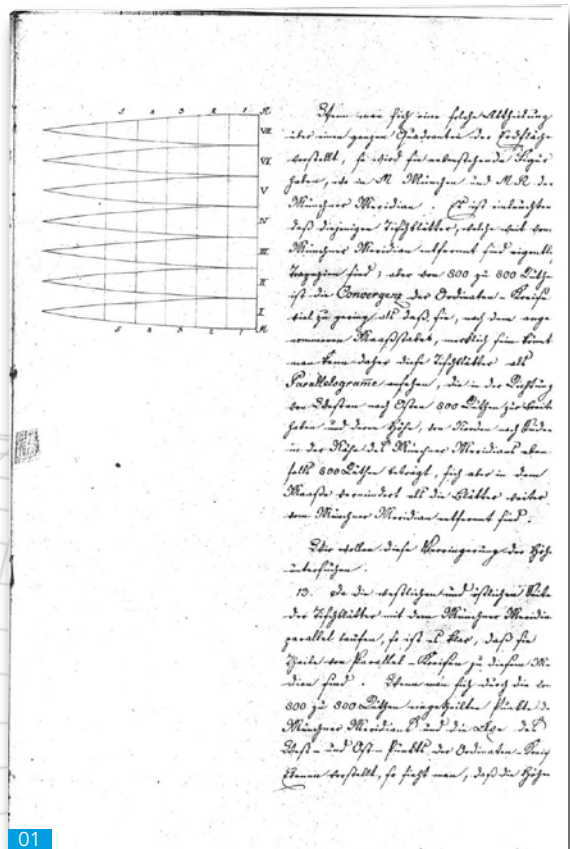 5 4 3 2 1 N
VII
VI
V
IV
III
II
I
5 4 3 2 1 M
Wenn man sich eine solche Abtheilung
über einen ganzen Quadranten der Erdfläche
vorstellt, so wird sie nebenstehende Figur
haben, wo in M München und M.N. der
Münchner Meridian. Es ist einleuchtend
daß diejenigen Tischblätter, welche weit vom
Münchner Meridian entfernt sind eigentl.
Trapezien sind; aber von 800 zu 800 Ruthen
ist die Convergenz der Ordinaten-Kreise
viel zu gering, als daß sie, nach dem ange
nommenen Maaßstabe, merklich seyn könnte
man kann daher diese Tischblätter als
Parallelogramme ansehen, die in der Richtung
von Westen nach Osten 800 Ruthen zur Breite
haben und deren Höhe, von Norden nach Süden
in der Nähe des Münchner Meridians eben
falls 800 Ruthen beträgt, sich aber in dem
Maaße vermindert als die Blätter weiter
vom Münchner Meridian entfernt sind.
Wir wollen diese Verringerung der Höhe
untersuchen.
13. Da die westlichen und östlichen Seiten
der Tischblätter mit dem Münchner Meridia
parallel laufen, so ist es klar, daß sie
Theile von Parallel-Kreisen zu diesem Me
dian sind. Wenn man sich durch die von
800 zu 800 Ruthen eingetheilten Punkte d.
Münchner Meridians und die Axe des
West- und Ost-Punkts der Ordinaten-Kreis
Ebenen vorstellt, so sieht man, daß die Höhen
01